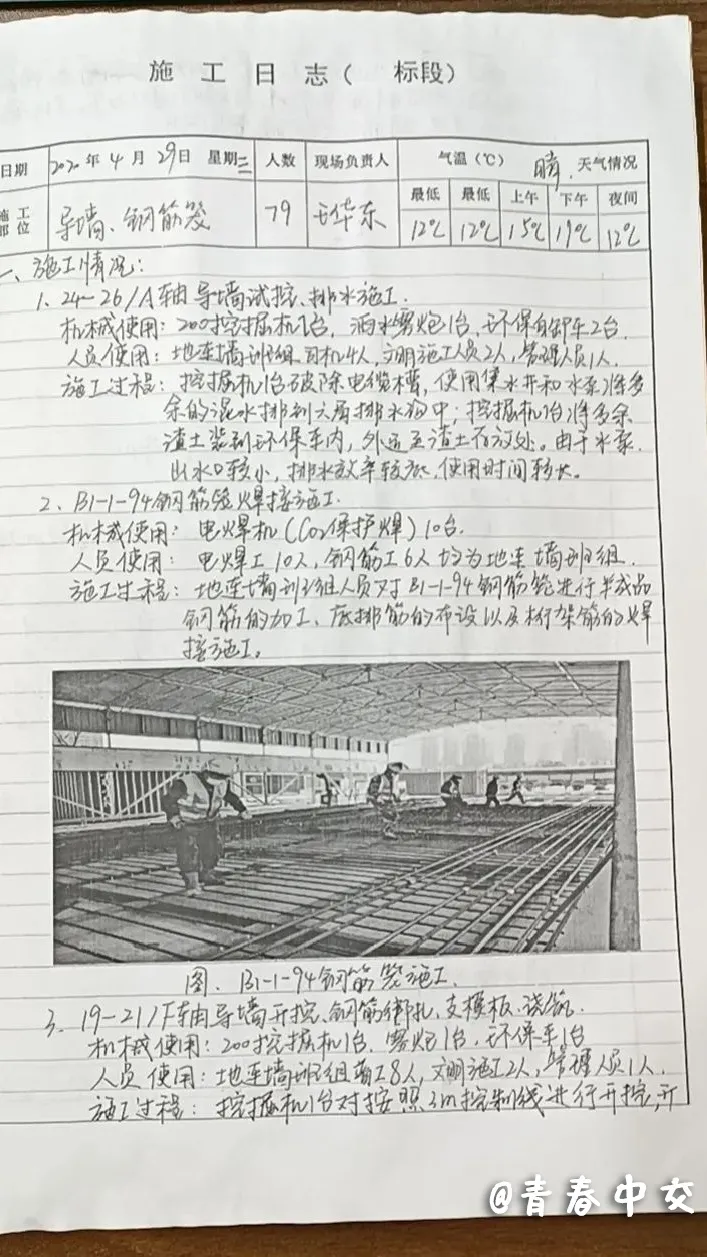 施 工 日 志 ( 标段)
日期 2020 年 4 月 29 日 星期三 人数 现场负责人 气温 (℃) 晴. 天气情况
最低 最低 上午 下午 夜间
施工部位 导墙、钢筋笼 79 12℃ 12℃ 15℃ 19℃ 12℃
一、施工情况:
1. 24-26/A轴导墙试挖、排水施工.
机械使用: 200挖掘机1台, 洒水雾炮1台, 环保自卸车2台.
人员使用: 地连墙班组、司机4人, 文明施工人员2人, 管理人员1人.
施工过程: 挖掘机1台破除电缆槽, 使用集水井和水泵将多
余的泥水排到六局排水沟中; 挖掘机1台将多余
渣土装到环保车内, 外运至渣土存放处。由于水泵
出水口较小, 排水效率较低, 使用时间较长。
2. B1-1-94钢筋笼焊接施工.
机械使用: 电焊机 (CO₂保护焊) 10台.
人员使用: 电焊工10人, 钢筋工6人均为地连墙班组.
施工过程: 地连墙班组人员对B1-1-94钢筋笼进行半成品
钢筋的加工、底排筋的布设以及桁架筋的焊
接施工。
图. B1-1-94钢筋笼施工.
3. 19-21/F轴导墙开挖、钢筋绑扎、支模板、浇筑.
机械使用: 200挖掘机1台, 雾炮1台, 环保车1台
人员使用: 地连墙班组 8人, 文明施工2人, 管理人员1人.
施工过程: 挖掘机1台对按照3m控制线进行开挖, 开
@青春中交